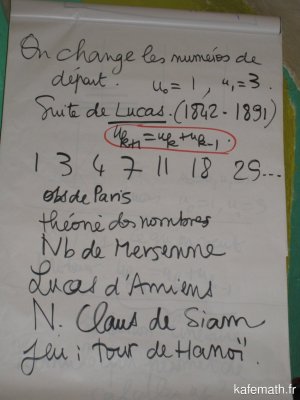 On change les numéros de
départ. u₀ = 1, u₁ = 3.
Suite de Lucas. (1842-1891)
uₖ₊₁ = uₖ + uₖ₋₁.
1 3 4 7 11 18 29...
obs de Paris
théorie des nombres
Nb de Mersenne
Lucas d'Amiens
N. Claus de Siam
Jeu : tour de Hanoï.
kafemath.fr